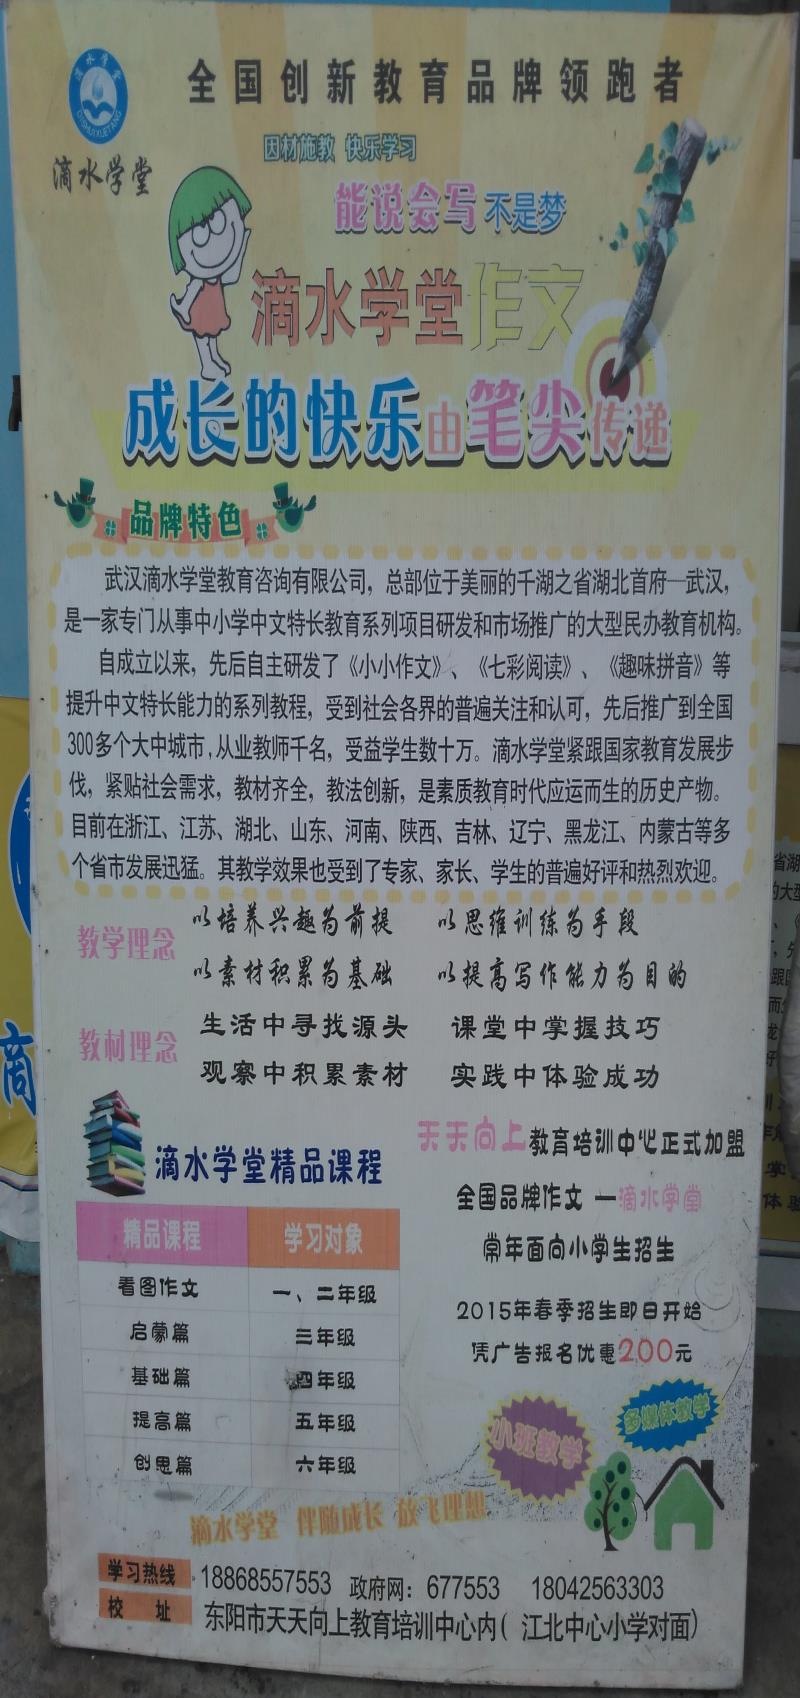 滴水学堂
DISHUIXUETANG
滴水学堂
全国创新教育品牌领跑者
因材施教 快乐学习
能说会写 不是梦
滴水学堂作文
成长的快乐由笔尖传递
品牌特色
武汉滴水学堂教育咨询有限公司，总部位于美丽的千湖之省湖北首府—武汉，
是一家专门从事中小学中文特长教育系列项目研发和市场推广的大型民办教育机构。
自成立以来，先后自主研发了《小小作文》、《七彩阅读》、《趣味拼音》等
提升中文特长能力的系列教程，受到社会各界的普遍关注和认可，先后推广到全国
300多个大中城市，从业教师千名，受益学生数十万。滴水学堂紧跟国家教育发展步
伐，紧贴社会需求，教材齐全，教法创新，是素质教育时代应运而生的历史产物。
目前在浙江、江苏、湖北、山东、河南、陕西、吉林、辽宁、黑龙江、内蒙古等多
个省市发展迅猛。其教学效果也受到了专家、家长、学生的普遍好评和热烈欢迎。
教学理念
以培养兴趣为前提 以思维训练为手段
以素材积累为基础 以提高写作能力为目的
教材理念
生活中寻找源头 课堂中掌握技巧
观察中积累素材 实践中体验成功
滴水学堂精品课程
精品课程 学习对象
看图作文 一、二年级
启蒙篇 三年级
基础篇 四年级
提高篇 五年级
创思篇 六年级
天天向上教育培训中心正式加盟
全国品牌作文 —滴水学堂
常年面向小学生招生
2015年春季招生即日开始
凭广告报名优惠200元
小班教学
多媒体教学
滴水学堂 伴随成长 放飞理想
学习热线 18868557553 政府网：677553 18042563303
校 址 东阳市天天向上教育培训中心内（ 江北中心小学对面）